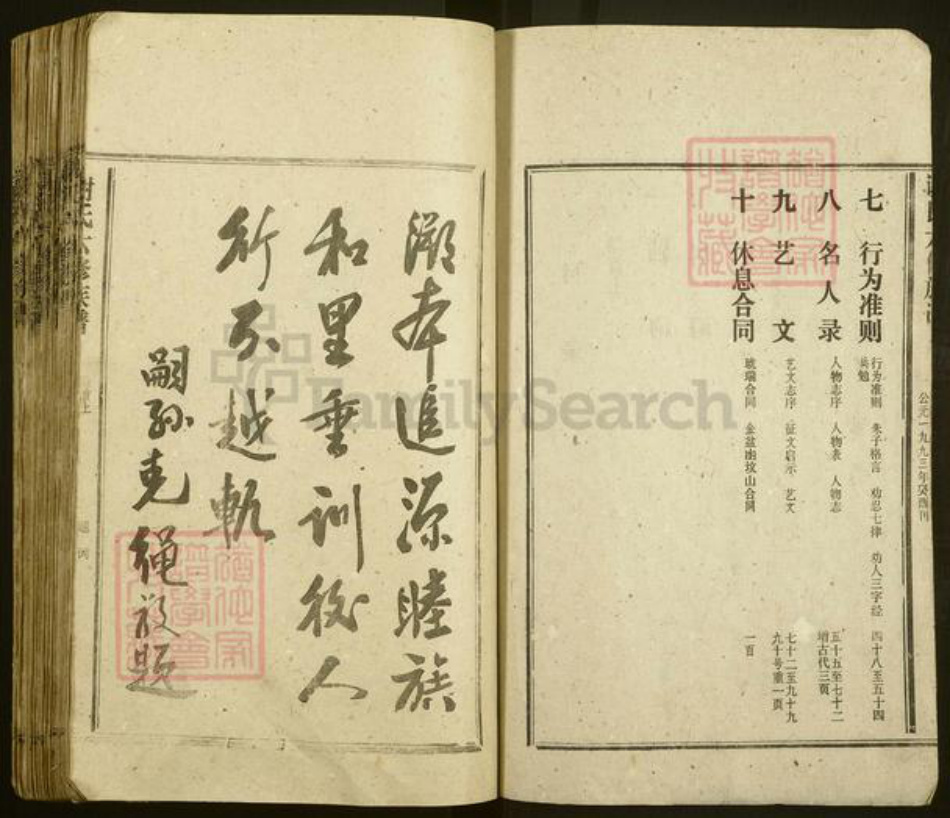 公元一九九三年癸酉刊
七 行为准则 行为准则 朱子格言 劝忍七律 劝人三字经 四十八至五十四
八 名人录 人物志序 人物表 人物志 五十五至七十二
增古代三页
九 艺文 艺文志序 征文启示 艺文 七十二至九十九
九十号重一页
十 休息合同 琥瑞合同 金盆幽坟山合同 一百
溯本追源睦族
和里垂训後人
行不越軌
嗣孙光绳敬题
谢氏六修族谱
FamilySearch